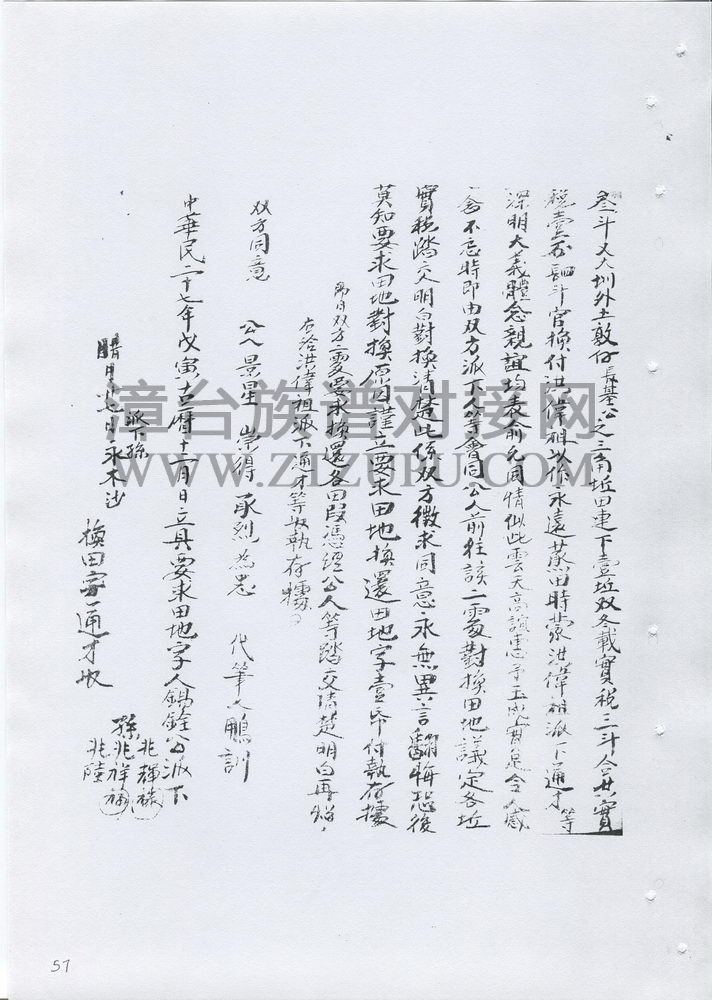 叁斗又大圳外土敦仔長基公之三角坵田連下壹坵双冬載實税三斗合共實
税壹石四斗官換付洪偉祖以作永遠蒸田時蒙洪偉祖派下通才等
深明大義體念親誼均表俞允同情似此雲天高誼惠予玉成實是令人感
念不忘時即由双方派下人等會同公人前往該二處對換田地議定各坵
實税踏交明白對換清楚此係双方徵求同意永無異言翻悔恐後
莫知要求田地對換原因謹立要求田地換還田地字壹帋付執存據
即日双方二處要求換還各田段憑經公人等踏交清楚明白再炤
在洽洪偉祖派下通才等收執存據
双方同意 公人 景星 崇得 承烈 為忠 代筆人鵬訓
中華民二十七年戊寅古曆十一月日立具要求田地字人錫銓公派下
孫兆祥 兆輝 兆陸
派下孫
腊月十七日永木沙
換田字通才收
漳台族谱对接网
WWW.ZTZUPU.COM
57